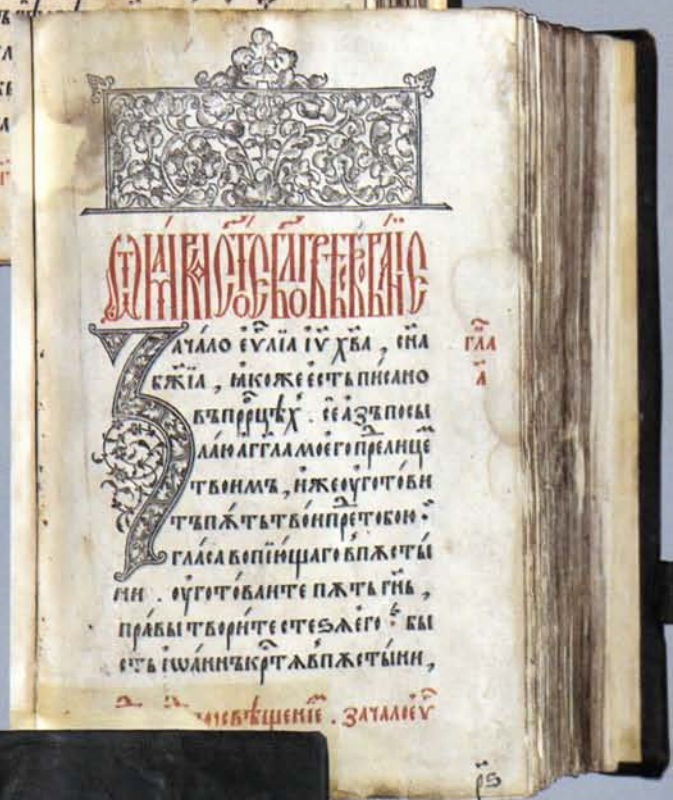 ѿ марка ст҃ое бл҃говѣствованїе
Зачало єѵⷢ҇лїа і҃ѵ хⷭ҇ва , сн҃а
бж҃їа , ꙗкоже єсть писано
въ прⷪ҇рцѣхⸯ . се азъ посы
лаю аггл҃а моего преⷣ лицеⷨ
твоимъ , иже оуготови
тъ пѫть твои преⷣ тобою :
гласа вопїющаго в пѫсты
ни . оуготоваите пѫть гн҃ь ,
правы творите стеѕѧ его : бы
сть іѡаннъ крⷭ҇тѧ в пѫстыни ,
гл҃а
а҃
свѣщенїе . зачало єѵⷢ҇
р҃ѕ